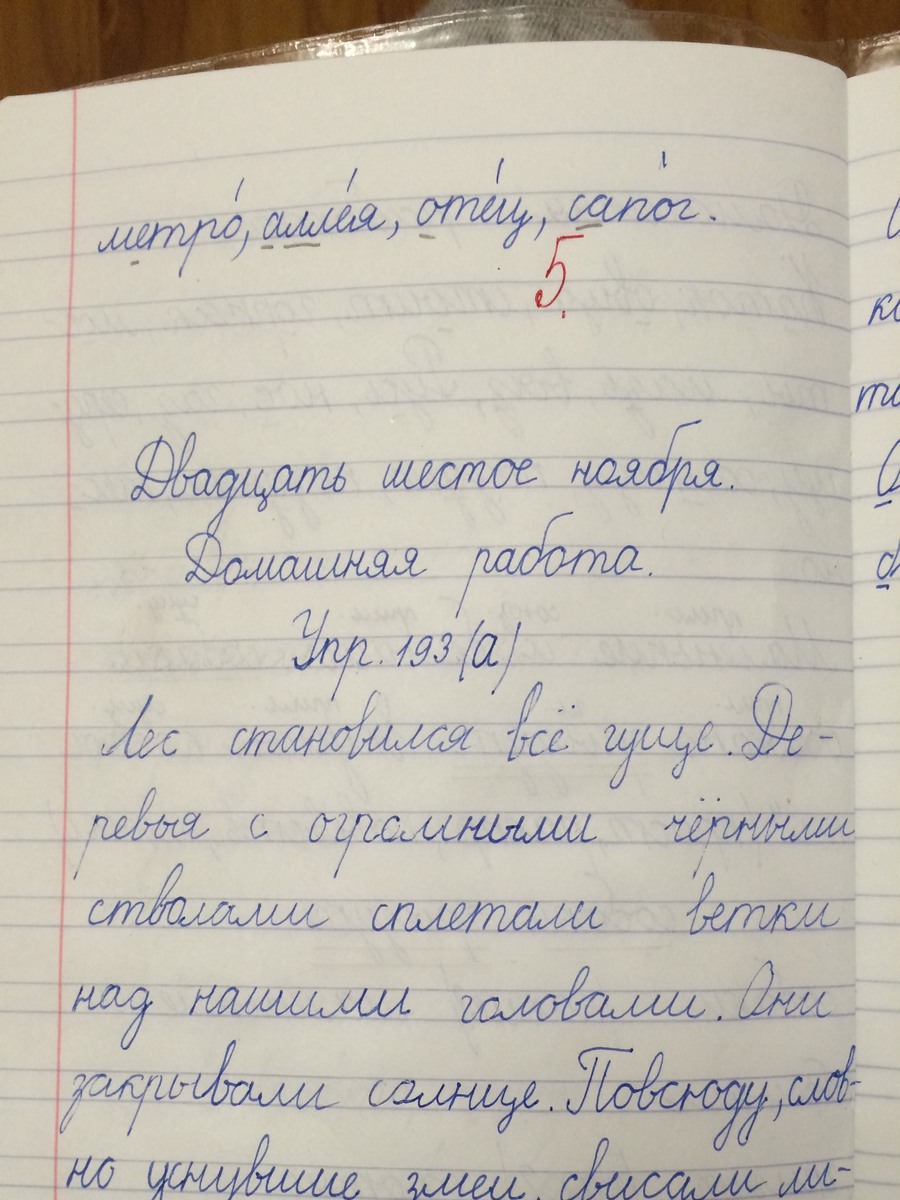 метро́, алле́я, оте́ц, сапо́г.
5.
Двадцать шестое ноября.
Домашняя работа.
Упр. 193 (а)
Лес становился всё гуще. Де-
ревья с огромными чёрными
стволами сплетали ветки
над нашими головами. Они
закрывали солнце. Повсюду, слов-
но уснувшие змеи, свисали ли-